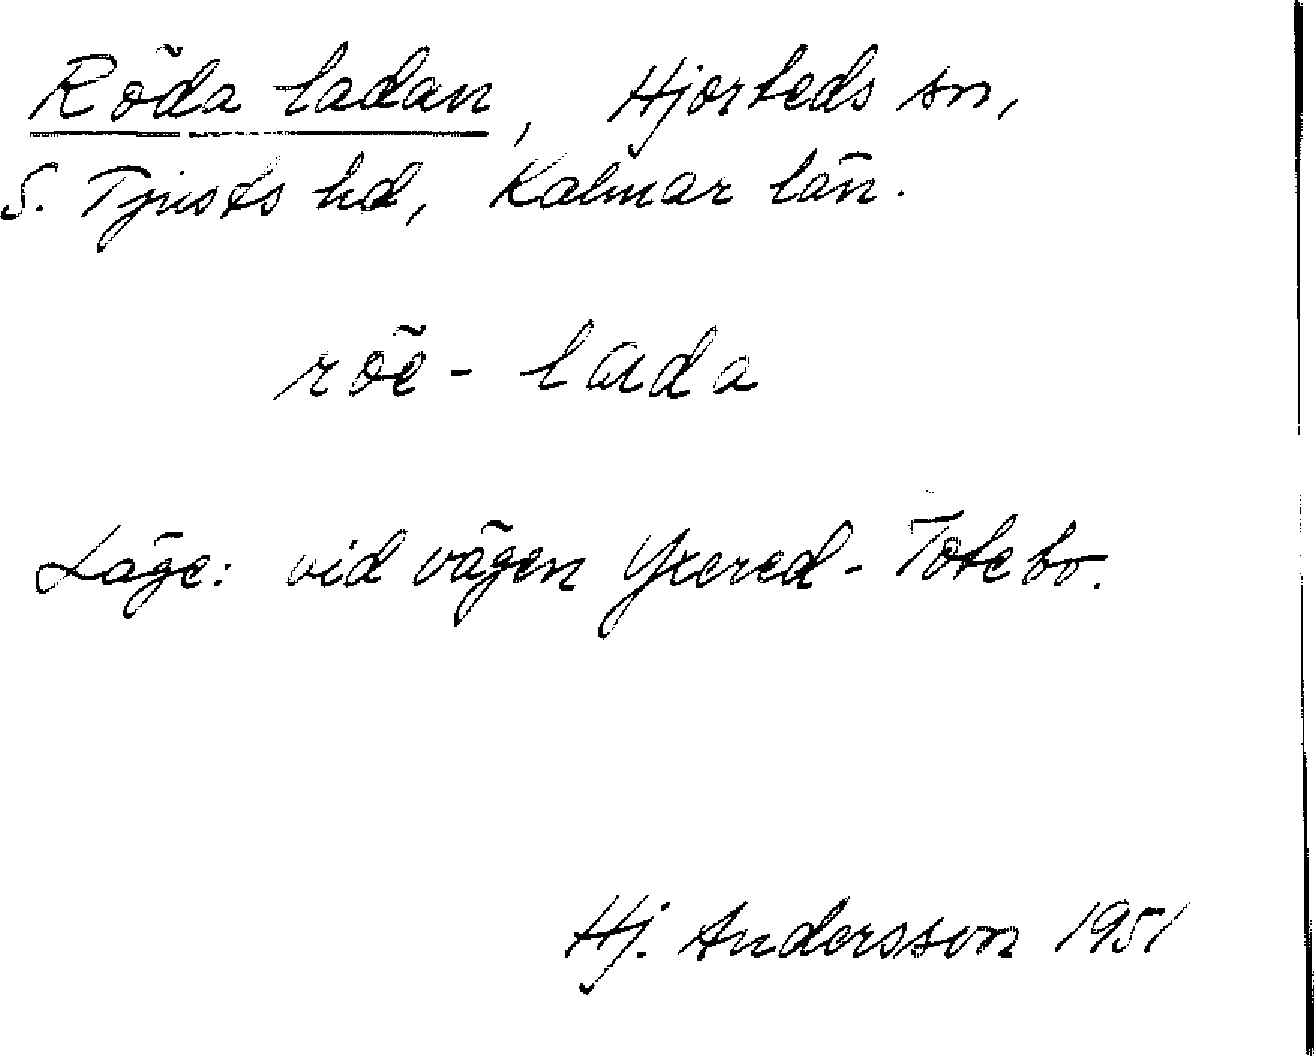 Röda ladan, Hjorteds sn,
S. Tjusts hd, Kalmar län.
röe- lada
Läge: vid vägen Yxered - Totebo.
Hj. Andersson 1951